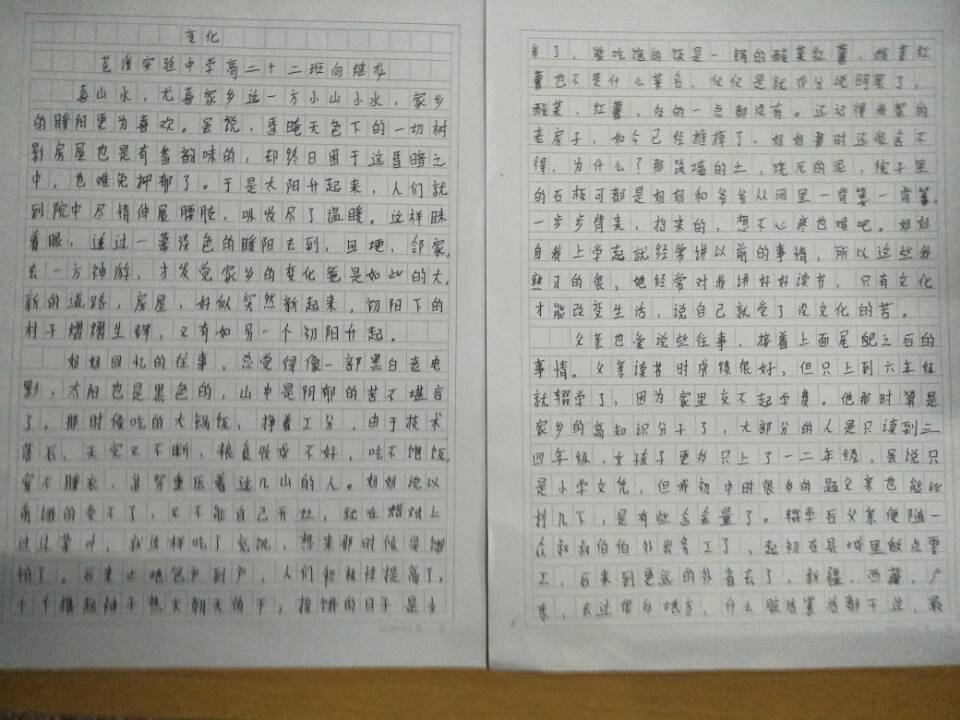 变化
苍溪实验中学高二十二班向继华
喜山水，尤喜家乡这一方小山小水，家乡
的暖阳更为喜欢。虽说，昏暗天色下的一切树
影房屋也是有番韵味的，却终日困于这昏暗之
中，也难免抑郁了。于是太阳升起来，人们就
到院中尽情伸展腰肢，吸发尽了温暖。这样眯
着眼，透过一幕淡色的暖阳去到，田埂，邻家，
去一方神游，才发觉家乡的变化竟是如此的大，
新的道路，房屋，好似突然新起来，初阳下的
村子熠熠生辉，又有如另一个初阳升起。
妈妈回忆的往事，总觉得像一部黑白去电
影，太阳也是黑色的，山中是阴郁的苦不堪言
了。那时候吃的大锅饭，挣着工分，由于技术
落后，天灾又不断，粮食收成不好，吃不饱饭，
穿不暖衣，着过几山的人。妈妈说以
前饿的受不了，又不能自己开灶，就在
过过菜叶，就这样吃了充饥，想来那时候是
怕了。后来土地包产到户，人们积极性提高了，
个个撸起袖子热火朝天的干，挨饿的日子是少
了，能吃饱的饭是一锅的酸菜红薯，酸菜红
薯也不是什么菜名，仅仅是就成分说明罢了，
酸菜，红薯，别的一点都没有。还记得我家的
老房子，如今已经推掉了，妈妈要时还很舍不
得，为什么？那筑墙的土，烧瓦的泥，院子里
的石板可都是妈妈和爷爷从河里一背篓一背篓，
一步步背来，抬来的，想不心疼也难吧。妈妈
自我上学起就经常讲以前的事情，所以这些我
熟习的很，她经常对我讲好好读书，只有文化
才能改变生活，说自己就受了没文化的苦。
父亲也爱说些往事，接着上面展配之后的
事情。父亲读书时成绩很好，但只上到六年级
就辍学了，因为家里交不起学费。他那时算是
家乡的高知识分子了，大部分的人是只读到三
四年级，女孩子更多只上了一二年级，虽说只
是小学文凭，但我初中时很多的题父亲也能比
划几下，是有些含金量了。辍学后父亲便随一
众叔叔伯伯外出务工了，起初在县城里做点零
工，后来到更远的外省去了，新疆，西藏，广
东，去过很多地方，什么脏活累活都干过，最